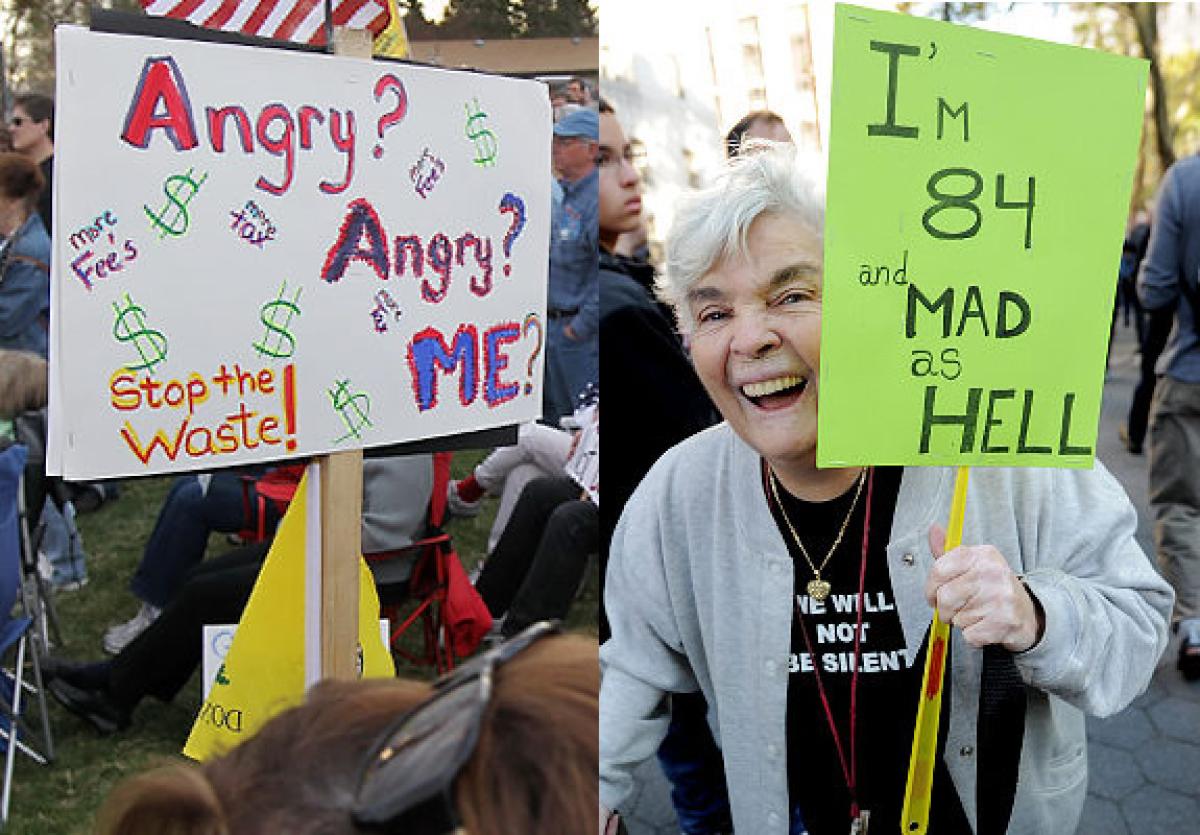 Angry?
more
Fee's
more
tax
more
Fee's
Angry?
ME?
Stop the
Waste!
I'M
84
and
MAD
as
HELL
WE WILL
NOT
BE SILENT